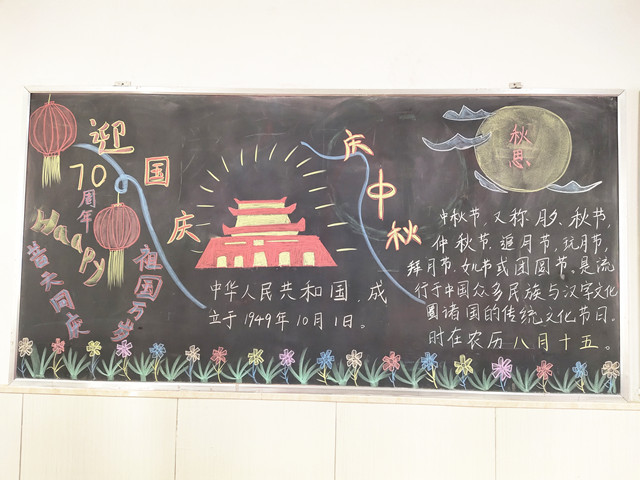 迎国庆
70
周年
Haapy
普天同庆
祖国万岁
中华人民共和国,成
立于1949年10月1日。
庆中秋
秋思
中秋节,又称月夕,秋节,
仲秋节,追月节,玩月节,
拜月节,女儿节或团圆节,是流
行于中国众多民族与汉字文化
圈诸国的传统文化节日。
时在农历八月十五。